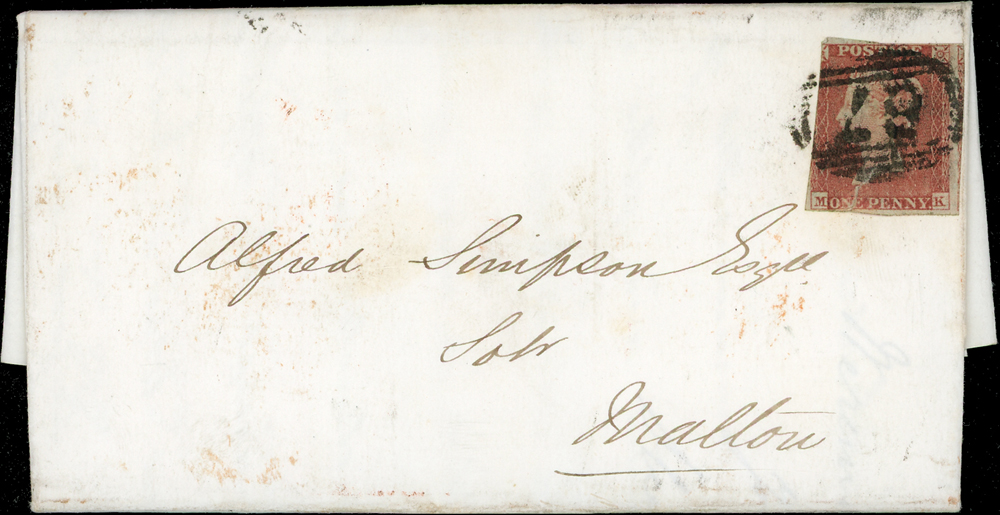 POSTAGE
M ONE PENNY K
Alfred Simpson Esqre
Solr
Malton